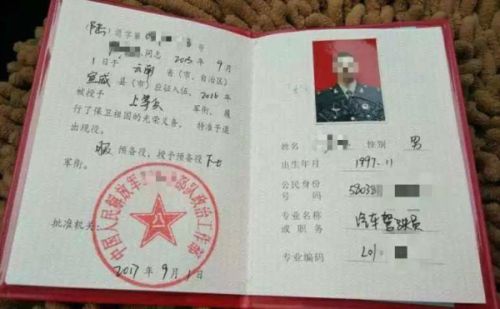 (陆)退字第 号
同志 2015 年 9 月
1 日于 云南 省(市、自治区)
宣威 县(市)应征入伍, 2016 年
被授予 上等兵 军衔, 履
行了保卫祖国的光荣义务, 特准予退
出现役。
服 预备役, 授予预备役 下士
军衔。
中国人民解放军 部队政治工作部
批准机关:
2017 年 9 月 1 日
姓名 性别 男
出生年月 1997.11
公民身份
号码 53038
专业名称
或职务 汽车驾驶员
专业编码 201